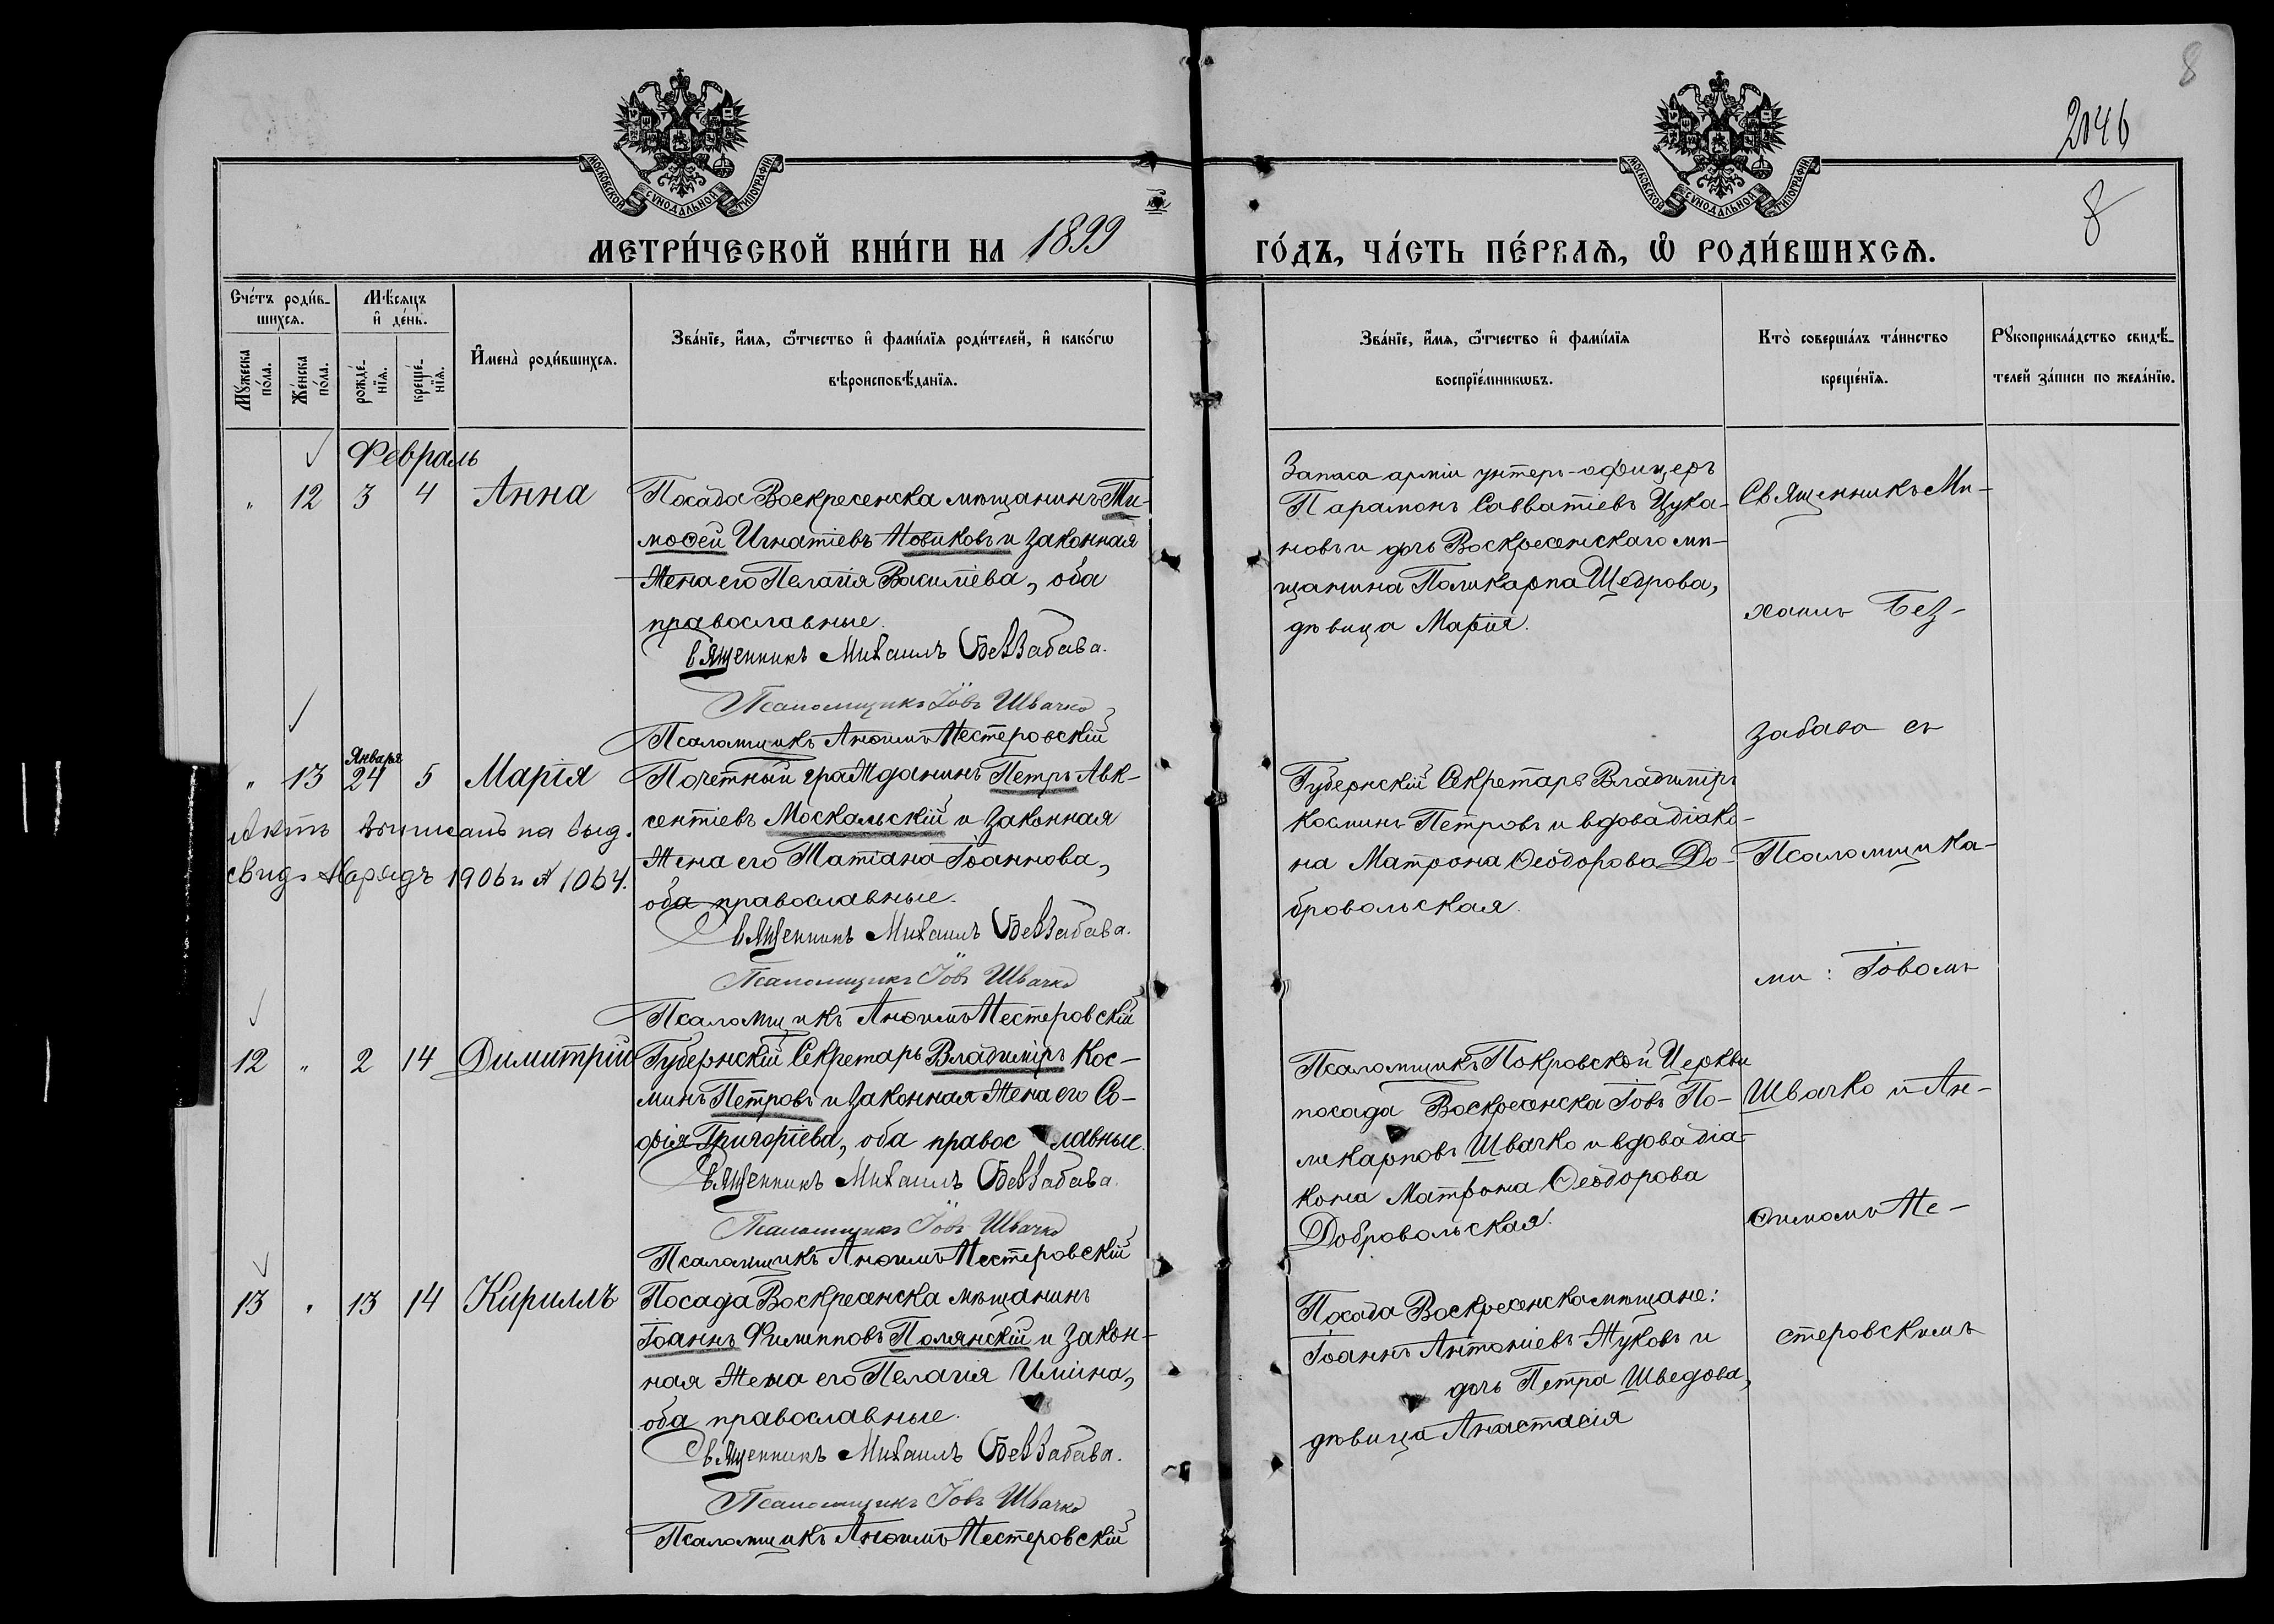 8
2046
8
МОСКОВСКОЙ СѴНОДАЛЬНОЙ ТИПОГРАФІИ
МОСКОВСКОЙ СѴНОДАЛЬНОЙ ТИПОГРАФІИ
МЕТРИ́ЧЕСКОЙ КНИ́ГИ НА 1899
ГО́ДЪ, ЧА́СТЬ ПЕ́РВАЯ, Ѡ РОДИ́ВШИХСЯ.
Сче́тъ роди́в-
шихся.
Мѣ́сяцъ
и҆ де́нь.
Мꙋ́жеска
по́ла.
Же́нска
по́ла.
рожде́-
нїя.
креще́-
нїя.
И҆мена̀ роди́вшихся.
Зва́нїе, и҆́мя, ѻ҆́тчество и҆ фами́лїя роди́телей, и҆ како́гѡ
вѣроисповѣ́данїя.
Зва́нїе, и҆́мя, ѻ҆́тчество и҆ фами́лїя
воспрїе́мникѡвъ.
Кто̀ соверша́лъ та́инство
креще́нїя.
Рꙋкоприкла́дство свидѣ́-
телей за́писи по жела́нїю.
Февраль
" 12 3 4 Анна
Посада Воскресенска мѣщанинъ Ти-
моѳей Игнатіевъ Новиковъ и законная
жена его Пелагія Василіева, оба
православные.
Священникъ Михаилъ Беззабава.
Псаломщикъ Іовъ Швачко
Псаломщикъ Анѳимъ Нестеровскій
Запаса арміи унтеръ-офицеръ
Парамонъ Савватіевъ Цука-
новъ и дочь Воскресенскаго мѣ-
щанина Поликарпа Щедрова,
дѣвица Марія.
Священникъ Ми-
хаилъ Без-
забава съ
Псаломщика-
ми: Іовомъ
Швачко и Ан-
ѳимомъ Не-
стеровскимъ
Января
" 13 24 5 Марія
Актъ выписанъ на выд.
свид. Нарядъ 1906 г. № 1064.
Почетный гражданинъ Петръ Авк-
сентіевъ Москальскій и законная
жена его Татіана Іоаннова,
оба православные.
Священникъ Михаилъ Беззабава.
Псаломщикъ Іовъ Швачко
Псаломщикъ Анѳимъ Нестеровскій
Губернскій Секретарь Владиміръ
Косминъ Петровъ и вдова діако-
на Матрона Ѳеодорова До-
бровольская.
12 " 2 14 Димитрій
Губернскій Секретарь Владиміръ Кос-
минъ Петровъ и законная жена его Со-
фія Григоріева, оба православные.
Священникъ Михаилъ Беззабава.
Псаломщикъ Іовъ Швачко
Псаломщикъ Анѳимъ Нестеровскій
Псаломщикъ Покровской Церкви
посада Воскресенска Іовъ По-
ликарповъ Швачко и вдова діа-
кона Матрона Ѳеодорова
Добровольская.
13 " 13 14 Кириллъ
Посада Воскресенска мѣщанинъ
Іоаннъ Филипповъ Полянскій и закон-
ная жена его Пелагія Иліина,
оба православные.
Священникъ Михаилъ Беззабава.
Псаломщикъ Іовъ Швачко
Псаломщикъ Анѳимъ Нестеровскій
Посада Воскресенска мѣщане:
Іоаннъ Антоніевъ Жуковъ и
дочь Петра Шведова,
дѣвица Анастасія